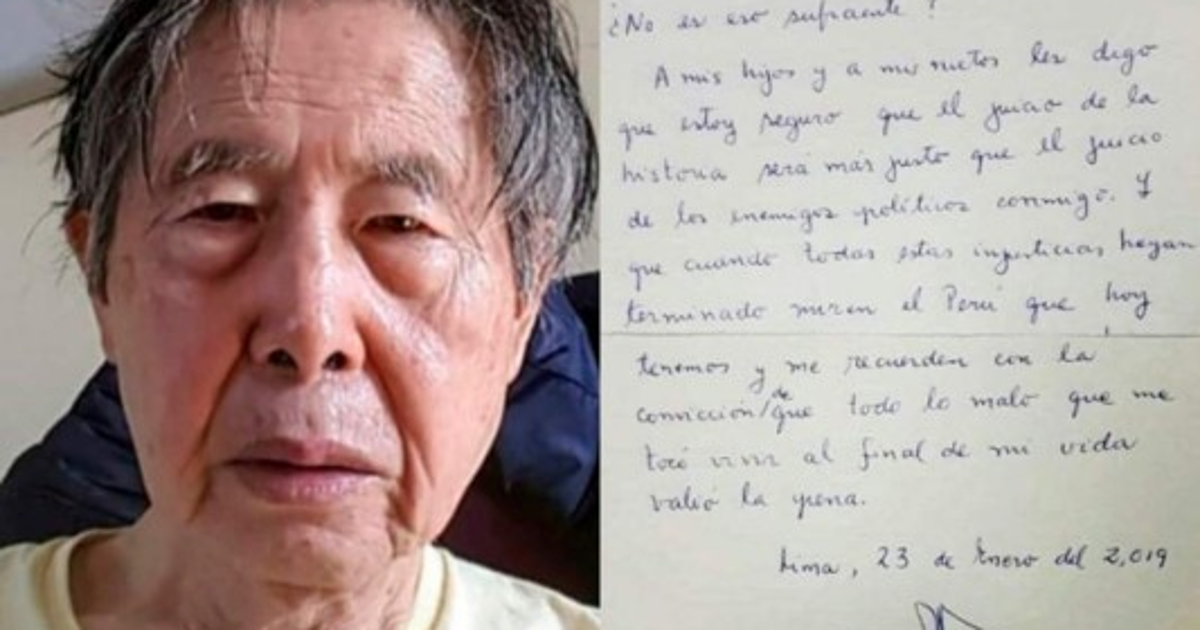 ¿No es eso suficiente?
A mis hijos y a mis nietos les digo
que estoy seguro que el juicio de la
historia será más justo que el juicio
de los enemigos políticos conmigo. Y
que cuando todas estas injusticias hayan
terminado miren el Perú que hoy
tenemos y me recuerden con la
convicción/de que todo lo malo que me
tocó vivir al final de mi vida
valió la pena.
Lima, 23 de Enero del 2,019